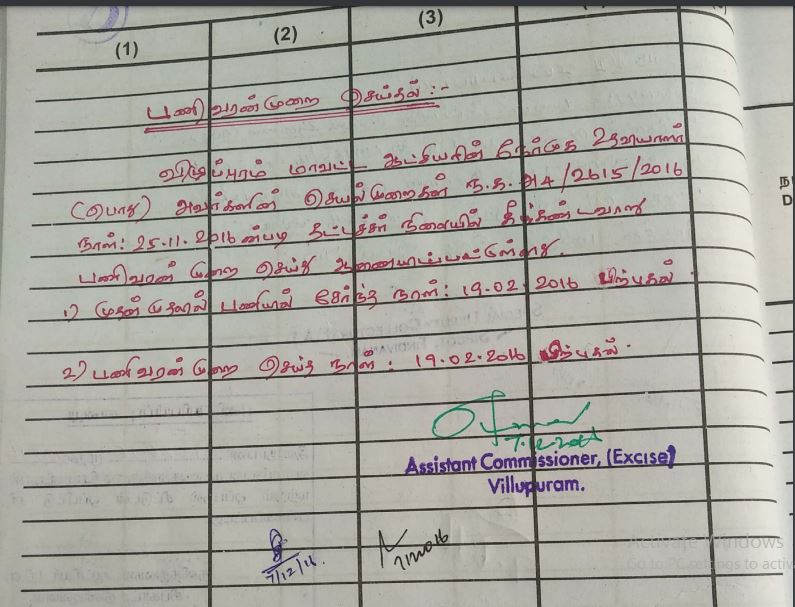 (1) (2) (3)
பணி வரன்முறை செய்தல் :-
விழுப்புரம் மாவட்ட ஆட்சியரின் நேர்முக உதவியாளர்
(பொது) அவர்களின் செயல்முறைகள் ந.க. அ4/2615/2016
நாள்: 25.11.2016 ன்படி தட்டச்சர் நிலையில் கீழ்கண்டவாறு
பணிவரன் முறை செய்து ஆணையிடப்பட்டுள்ளது.
1) முதன் முதலில் பணியில் சேர்ந்த நாள்: 19.02.2016 பிற்பகல்.
2) பணிவரன் முறை செய்த நாள்: 19.02.2016 பிற்பகல்.
Assistant Commissioner, (Excise)
Villupuram.
7/12/16
Activate Windows
Go to PC settings to activ